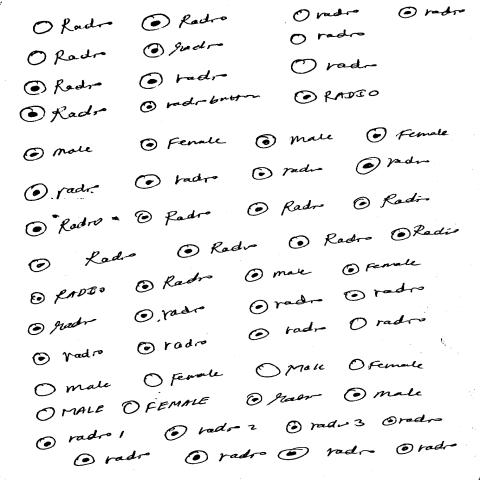 Radio Radio radio radio
Radio radio radio
Radio radio radio
Radio radio button RADIO
male Female male Female
radio radio radio radio
"Radio" Radio Radio Radio
Radio Radio Radio Radio
RADIO Radio male Female
radio radio radio radio
radio radio radio radio
male Female Male Female
MALE FEMALE radio male
radio 1 radio 2 radio 3 radio
radio radio radio radio